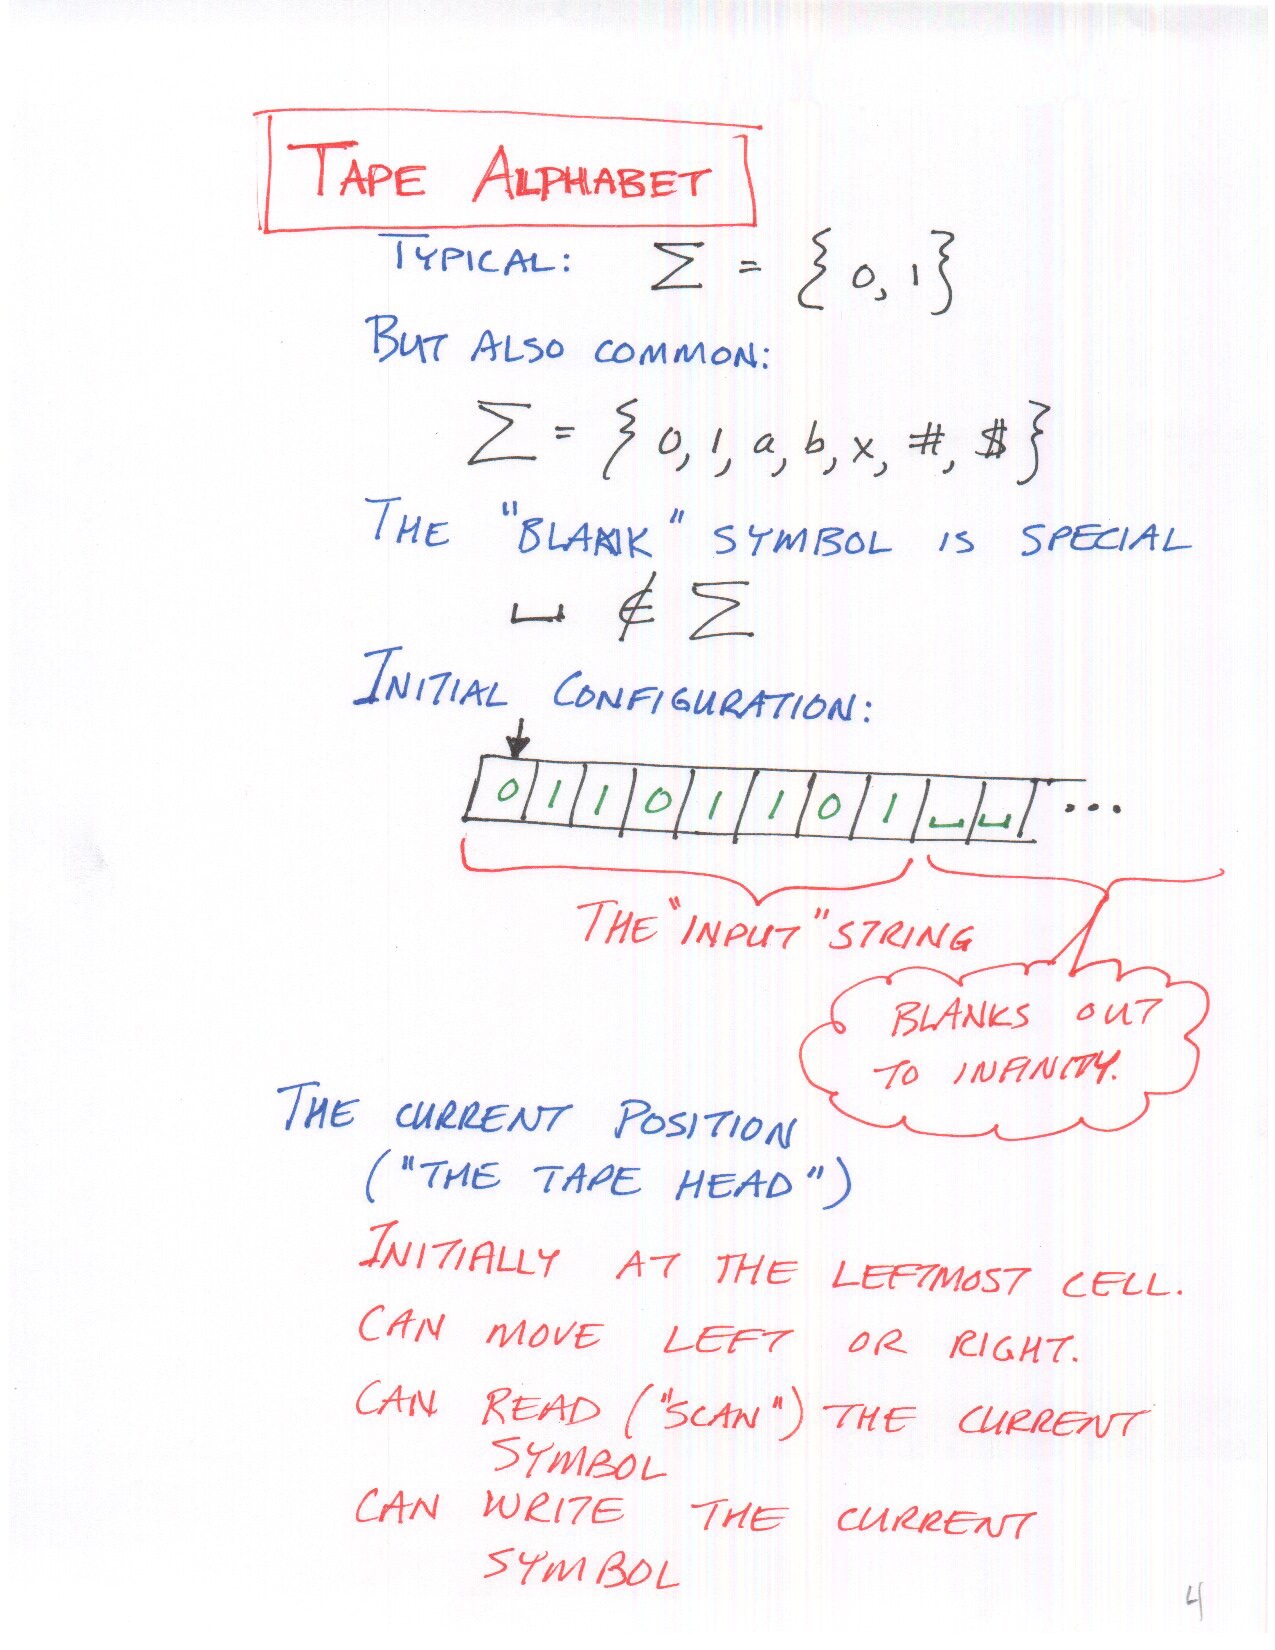 TAPE ALPHABET
TYPICAL: Σ = {0, 1}
BUT ALSO COMMON:
Σ = {0, 1, a, b, x, #, $}
THE "BLANK" SYMBOL IS SPECIAL
␣ ∉ Σ
INITIAL CONFIGURATION:
0 1 1 0 1 1 0 1 ␣ ␣ ...
THE "INPUT" STRING
BLANKS OUT
TO INFINITY.
THE CURRENT POSITION
("THE TAPE HEAD")
INITIALLY AT THE LEFTMOST CELL.
CAN MOVE LEFT OR RIGHT.
CAN READ ("SCAN") THE CURRENT
SYMBOL
CAN WRITE THE CURRENT
SYMBOL
4